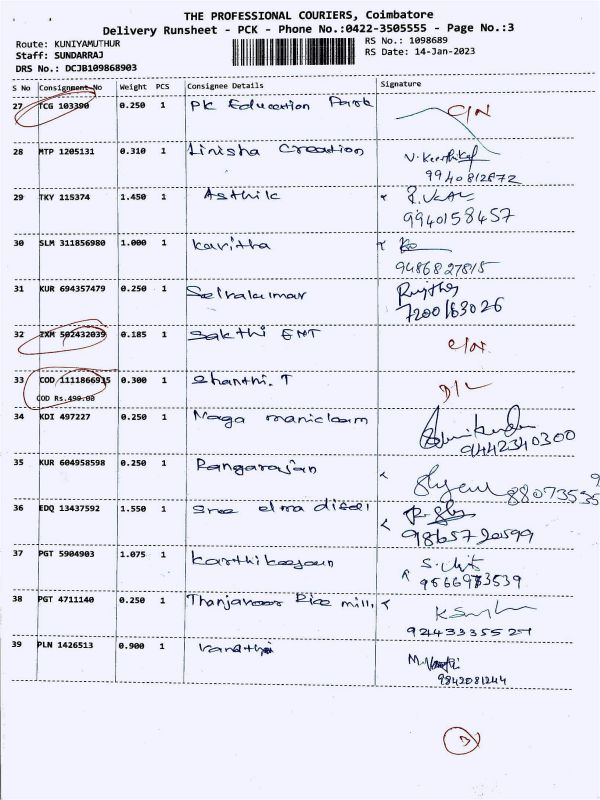 THE PROFESSIONAL COURIERS, Coimbatore
Delivery Runsheet - PCK - Phone No.:0422-3505555 - Page No.:3
Route: KUNIYAMUTHUR
RS No.: 1098689
Staff: SUNDARRAJ
RS Date: 14-Jan-2023
DRS No.: DCJB109868903
S No Consignment No Weight PCS Consignee Details Signature
27 TCG 103390 0.250 1 PK Education Park C/N
28 MTP 1205131 0.310 1 Linisha Creation
9940812872
29 TKY 115374 1.450 1 Asthik
9940158457
30 SLM 311856980 1.000 1 Kavitha
9486827815
31 KUR 694357479 0.250 1 Selvakumar
7200163026
32 ZXM 502432039 0.185 1 Sakthi ENT C/N.
33 COD 1111866915 0.300 1 Shanthi. T D/L
COD Rs.499.00
34 KDI 497227 0.250 1 Naga manickam
9442340300
35 KUR 604958598 0.250 1 Rangarajan
36 EDQ 13437592 1.550 1 Sree
9865720599
37 PGT 5904903 1.075 1
9566973539
38 PGT 4711140 0.250 1 Thanjavoor Rice mill,
39 PLN 1426513 0.900 1 Vanathi
9842081244
3